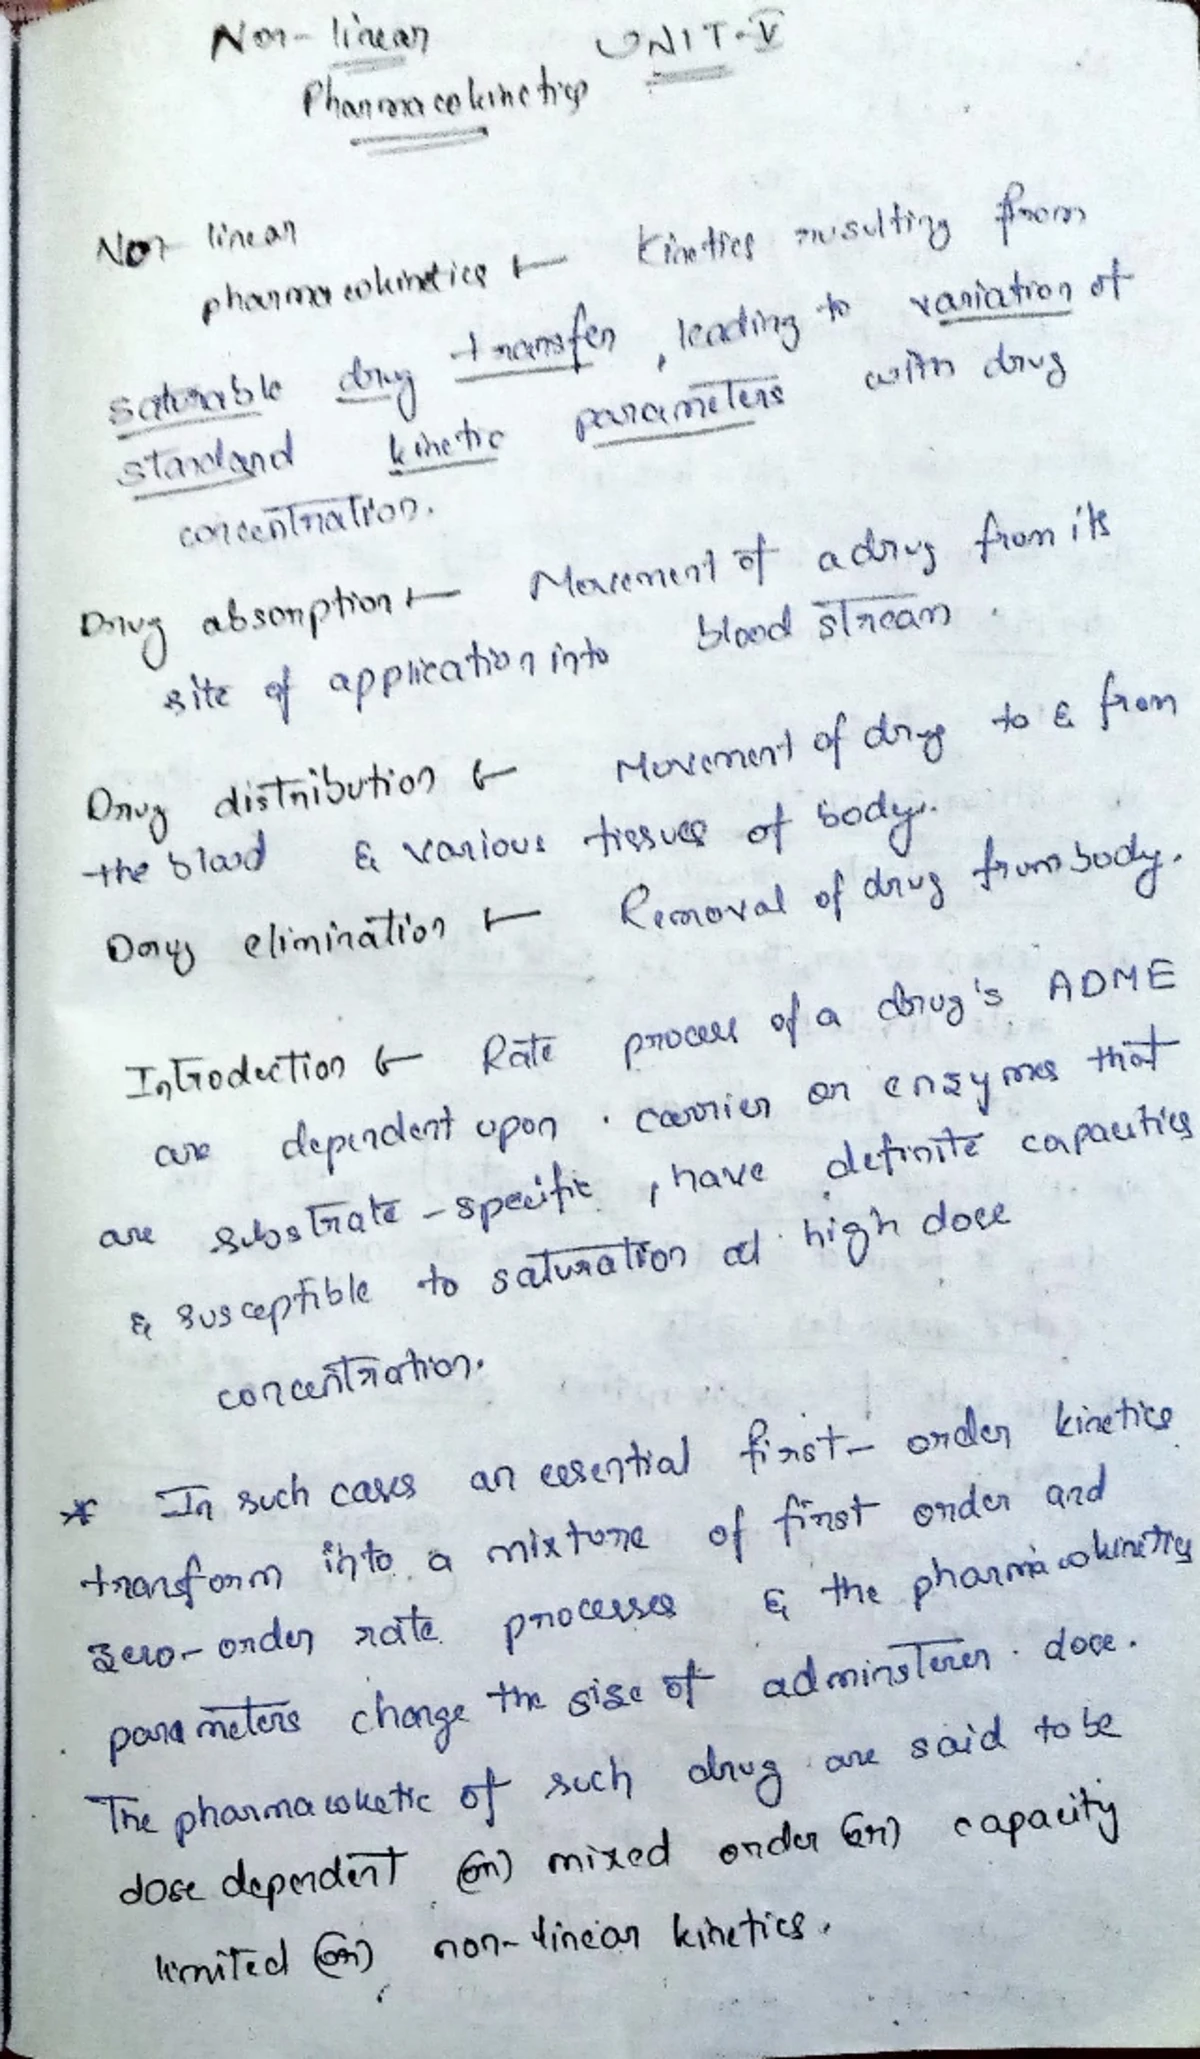 Non-linear UNIT-V
Pharmacokinetics
Non linear
pharmacokinetics :- Kinetics resulting from
saturable drug transfer, leading to variation of
standard kinetic parameters with drug
concentration.
Drug absorption :- Movement of a drug from its
site of application into blood stream.
Drug distribution :- Movement of drug to & from
the blood & various tissues of body.
Drug elimination :- Removal of drug from body.
Introduction :- Rate process of a drug's ADME
are dependent upon carrier or enzymes that
are substrate-specific, have definite capacities
& susceptible to saturation at high dose
concentration.
* In such cases an essential first-order kinetics
transform into a mixture of first order and
zero-order rate processes & the pharmacokinetics
parameters change the size of adminsterer dose.
The pharmacoketic of such drug are said to be
dose dependent (or) mixed order (or) capacity
limited (or) non-linear kinetics.